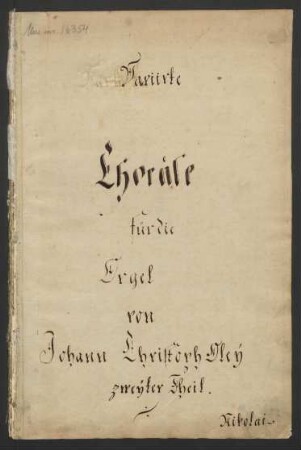 Mus.ms. 16354
Variirte
Choräle
für die
Orgel
von
Johann Christoph Oley
zweyter Theil.
Nikolai